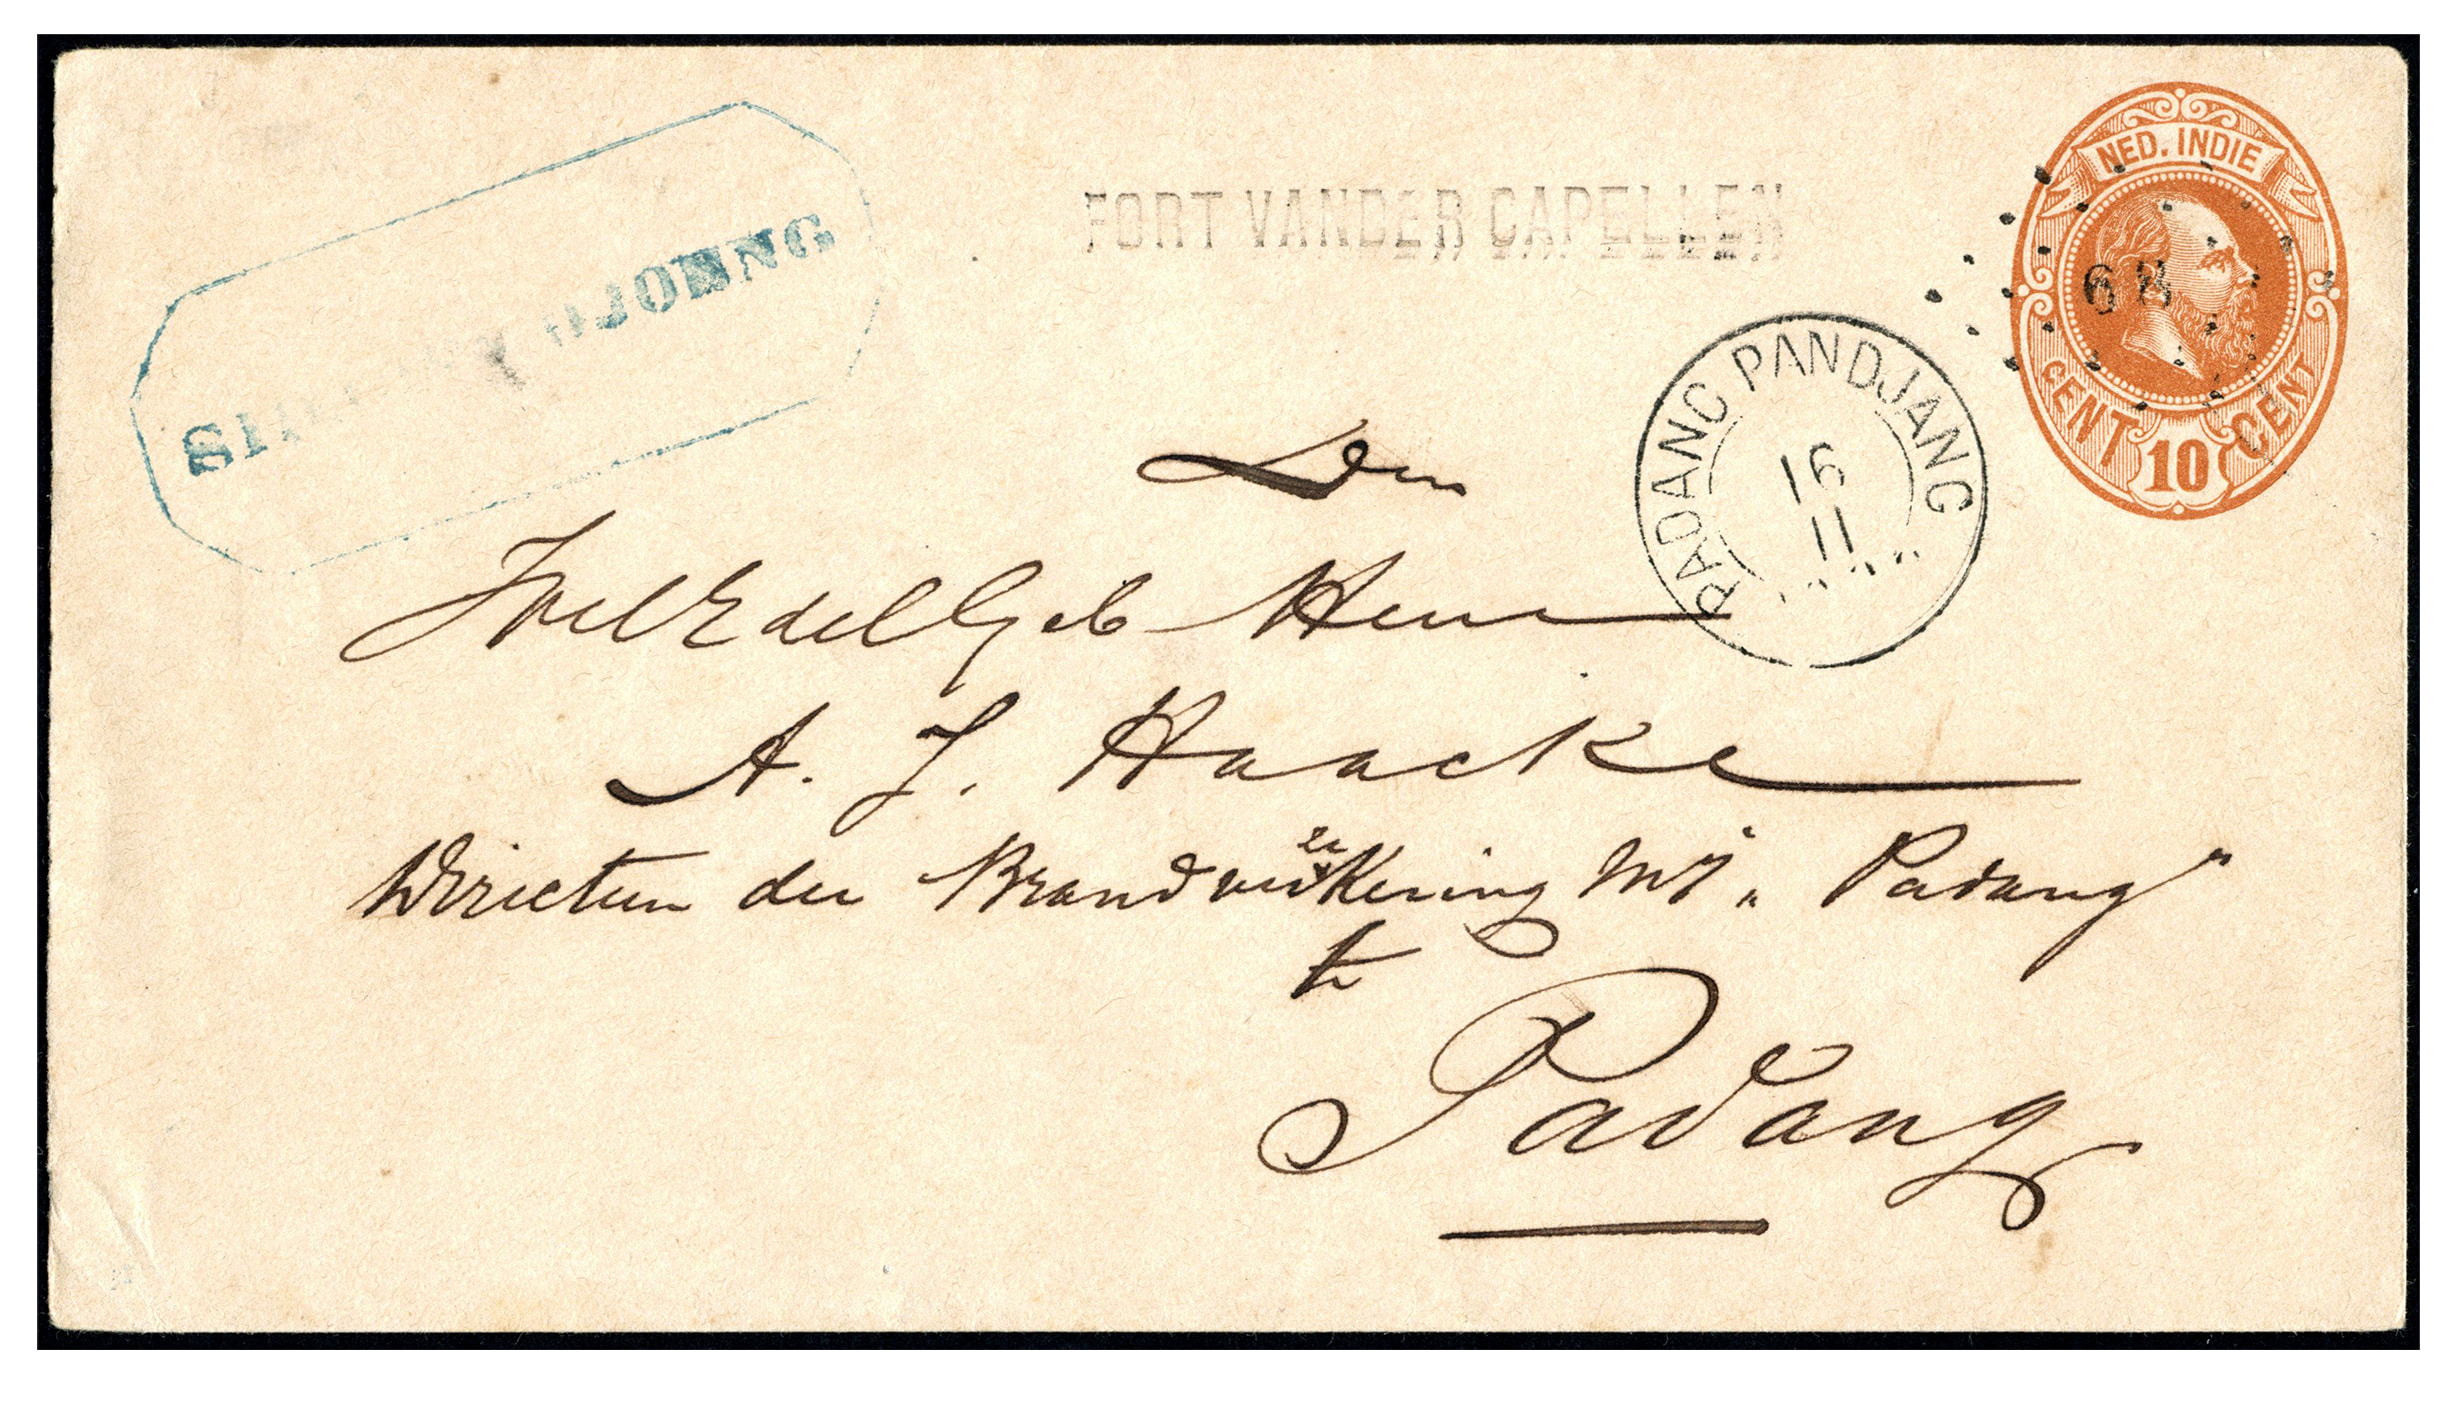 NED. INDIE
CENT 10 CENT
68
FORT VANDER CAPELLEN
PADANG PANDJANG
16
11
Den
WelEdelGeb Heer
A. J. Haacke
Directeur der Brandverzekering Mij „Padang"
te
Padang